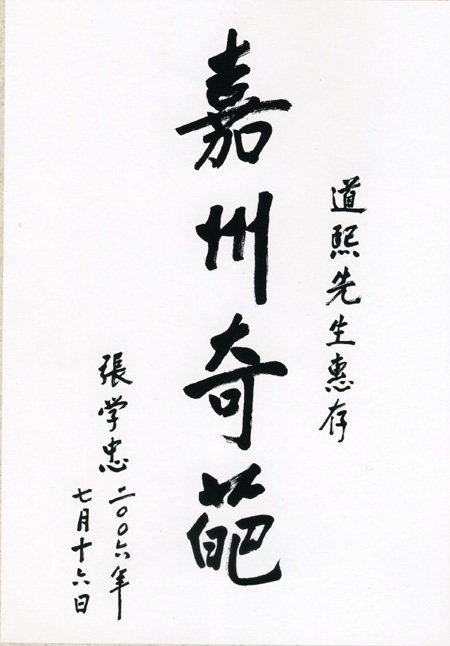 道熙先生惠存
嘉州奇葩
張学忠 二〇〇六年
七月十六日